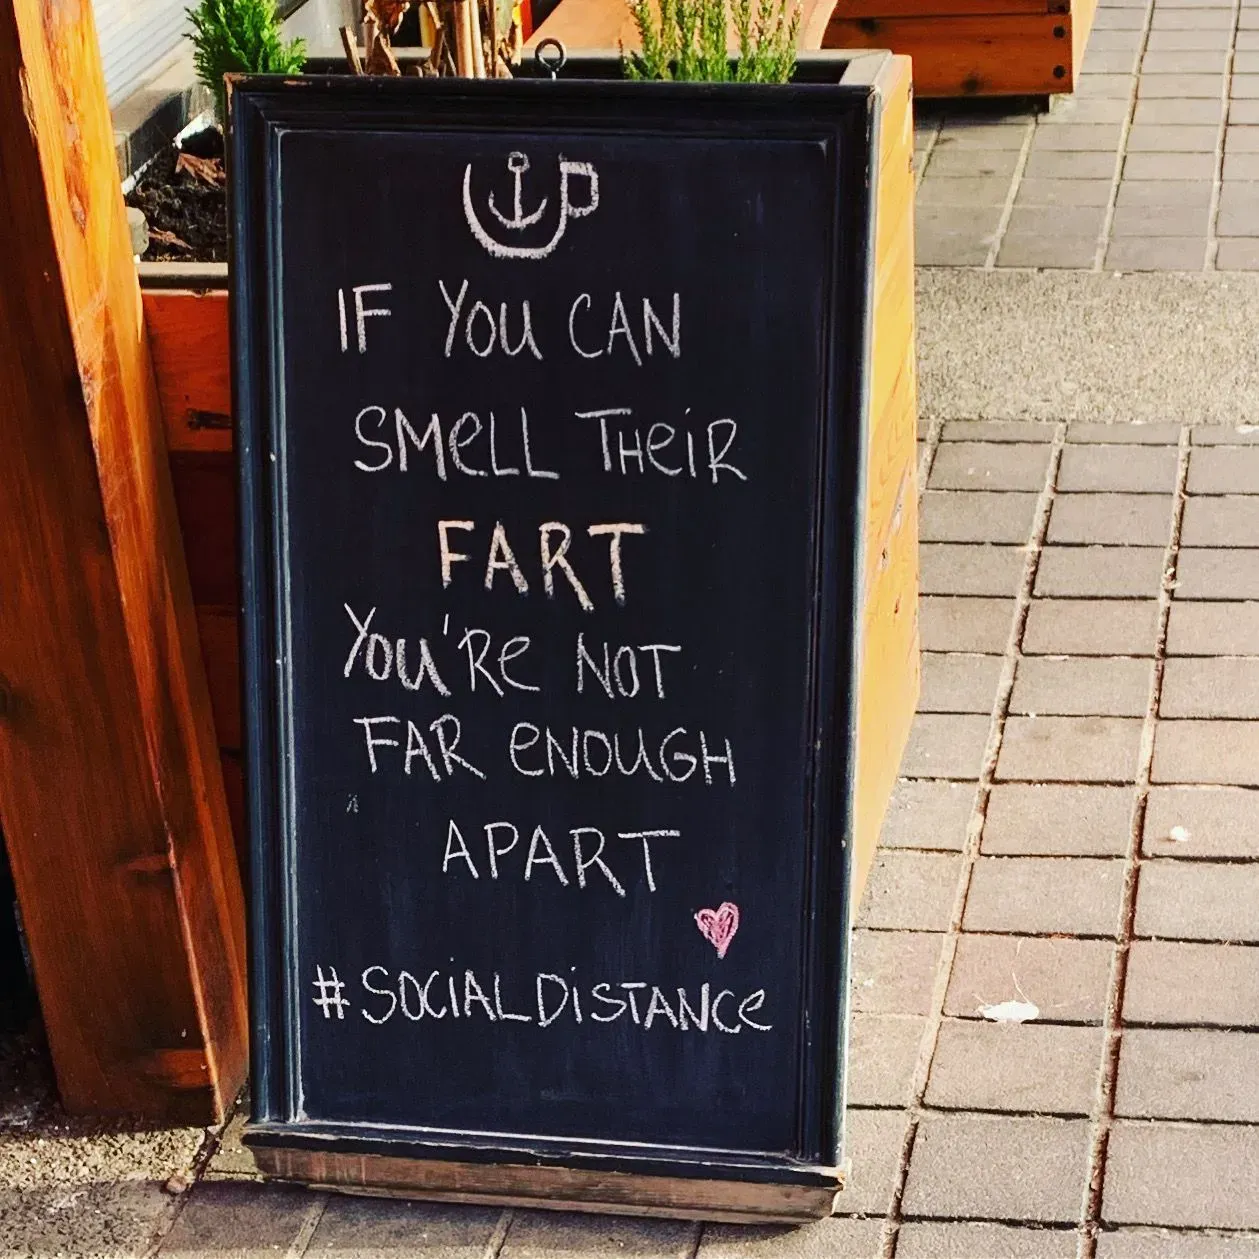 IF YOU CAN
SMELL THEIR
FART
YOU'RE NOT
FAR ENOUGH
APART
#SOCIALDISTANCE